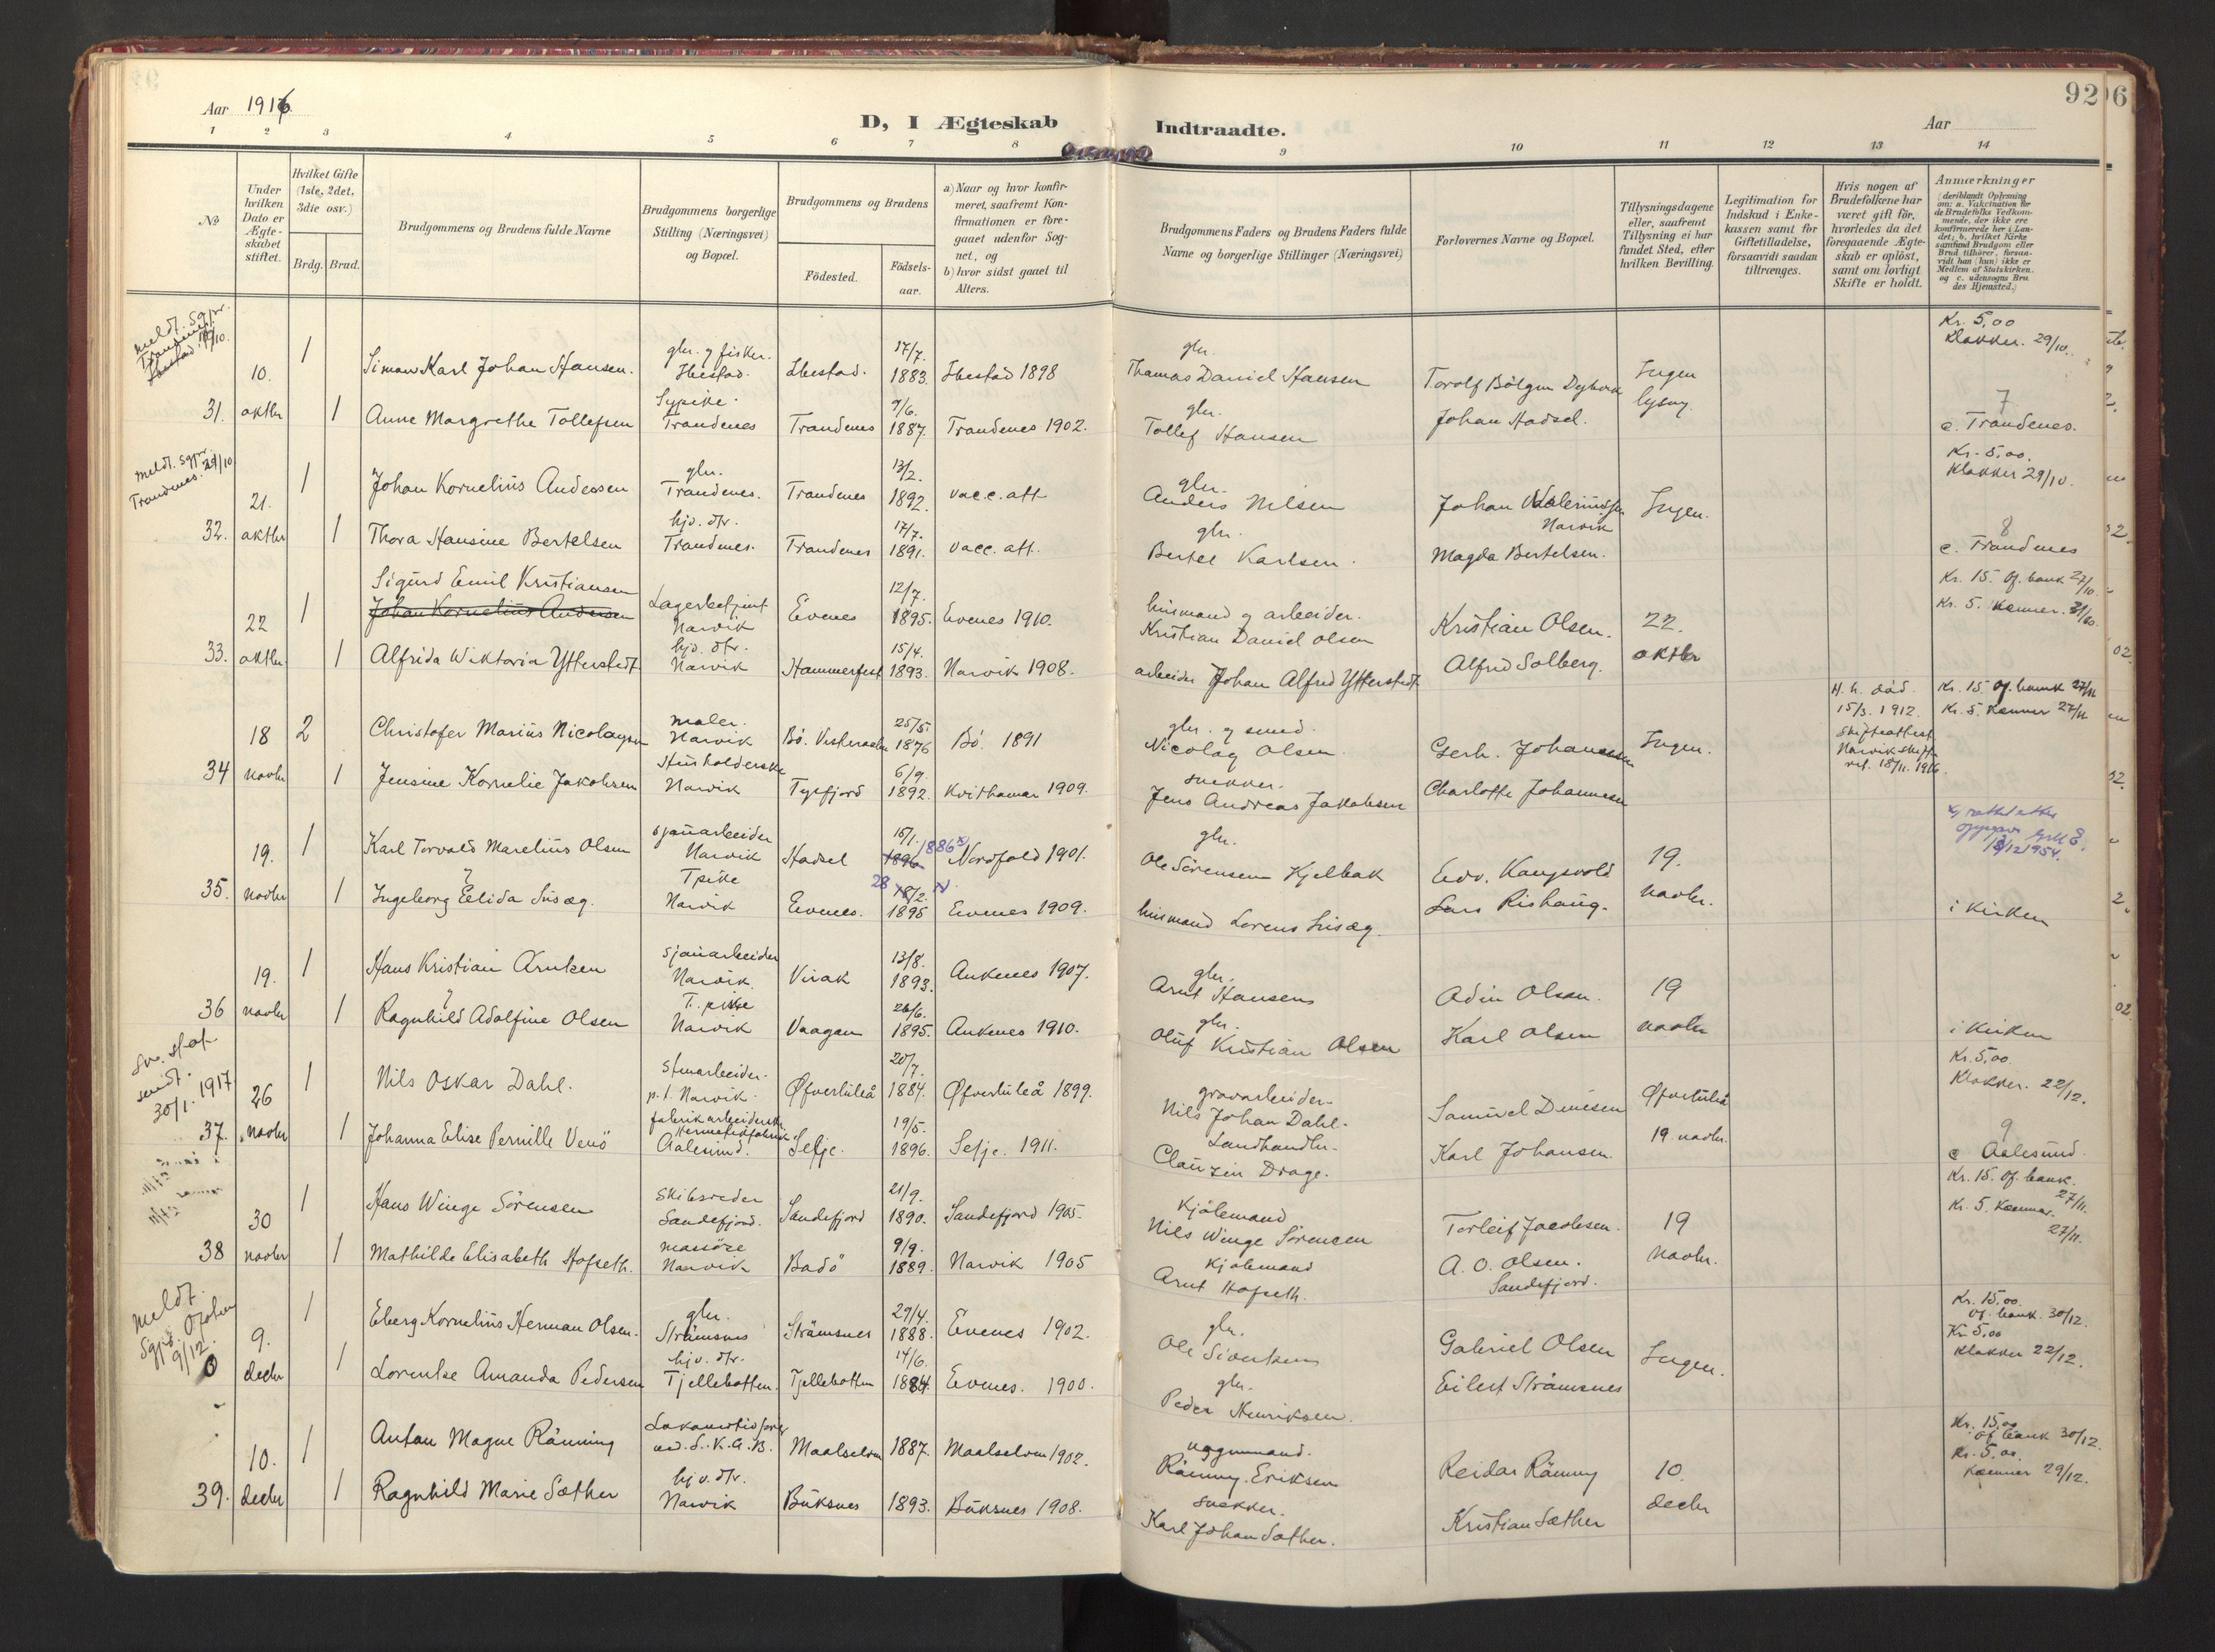 Aar 1916
D, I Ægteskab Indtraadte.
Aar
92
06
1 2 3 4 5 6 7 8 9 10 11 12 13 14
No
Under hvilken Dato er Ægteskabet stiftet.
Hvilket Gifte (1ste, 2det, 3die osv.)
Brdg. Brud.
Brudgommens og Brudens fulde Navne
Brudgommens borgerlige Stilling (Næringsvei) og Bopæl.
Brudgommens og Brudens
Födested.
Födsels-aar.
a) Naar og hvor konfirmeret, saafremt Konfirmationen er foregaaet udenfor Sognet, og
b) hvor sidst gaaet til Alters.
Brudgommens Faders og Brudens Faders fulde Navne og borgerlige Stillinger (Næringsvei)
Forlovernes Navne og Bopæl.
Tillysningsdagene eller, saafremt Tillysning ei har fundet Sted, efter hvilken Bevilling.
Legitimation for Indskud i Enkekassen samt for Giftetilladelse, forsaavidt saadan tiltrænges.
Hvis nogen af Brudefolkene har været gift för, hvorledes da det foregaaende Ægteskab er oplöst, samt om lovligt Skifte er holdt.
Anmærkninger
(deriblandt Oplysning om: a. Vakcination for de Brudefolks Vedkommende, der ikke ere konfirmerede her i Landet; b. hvilket Kirkesamfund Brudgom eller Brud tilhörer, forsaavidt han (hun) ikke er Medlem af Statskirken, og c. udensogns Brudes Hjemsted.)
meldt. Sgpr.
Trandenes
Ibestad 10/10.
10. 1 Simon Karl Johan Hansen. gbr. og fisker. Ibestad. Ibestad. 17/7. 1883. Ibestad 1898 gbr. Thomas Daniel Hansen Torolf Bölgen Ingen Kr. 5,00 Klokker. 29/10.
31. oktbr 1 Anne Margrethe Tollefsen Sypike. Trandenes Trandenes 9/6. 1887. Trandenes 1902. gbr. Tollef Hansen Johan Hadsel. lysing. 7 c. Trandenes.
meldt. Sgpr. Trandenes. 29/10
21. 1 Johan Kornelius Andersen gbr. Trandenes. Trandenes 13/2. 1892. vacc. att gbr. Anders Nilsen Johan Narvik Ingen. Kr. 5,00. Klokker 29/10.
32. oktbr 1 Thora Hansine Bertelsen hjv. dtr. Trandenes. Trandenes 17/7. 1891. vacc. att. gbr. Bertel Karlsen. Magda Bertelsen. 8 c. Trandenes
22 1 Sigurd Emil Kristiansen
Johan Kornelius Andersen
Lagerbetjent Narvik Evenes 12/7. 1895. Evenes 1910. husmand og arbeider. Kristian Daniel Olsen Kristian Olsen. 22. Kr. 15. Of. bank 27/10. Kr. 5. Kemner.
33. oktbr 1 Alfrida Wiktoria Ytterstedt hjv. dtr. Narvik Hammerfest 15/4. 1893. Narvik 1908. arbeider Johan Alfred Ytterstedt Alfred Solberg. oktbr
18 2 Christofer Marius Nicolaysen maler. Narvik Bö. Vesteraalen 25/5. 1876 Bö. 1891 gbr. og smed. Nicolay Olsen Gerh. Johannesen Ingen. H. h. död. 15/3. 1912. Skifteattest Narvik skifteret. 18/11. 1916. Kr. 15 Of. bank 27/11 Kr. 5. Kemner 27/11.
34 novbr 1 Jensine Kornelie Jakobsen Husholderske Narvik Tysfjord 6/9. 1892. Kvithamar 1909. snekker. Jens Andreas Jakobsen Charlotte Johannesen
19. 1 Karl Torvald Marelius Olsen sjauarbeider Narvik Hadsel 15/1. 1896 1886 x) Nordfold 1901. gbr. Ole Sörensen Kjelbak Edv. Kangsvold 19. x) rettet etter oppgave 1954.
35. novbr 1 Ingeborg Elida Lusæg. Tpike Narvik Evenes. 28 18/2. 1895 Evenes 1909. husmand Lorens Lusæg. Lars Rishaug. novbr. i kirken
19. 1 Hans Kristian Arntsen sjauarbeider Narvik. Virak 13/8. 1893. Ankenes 1907. gbr. Arnt Hansen Adin Olsen. 19
36 novbr 1 Ragnhild Adolfine Olsen T. pike Narvik Vaagan 26/6. 1895. Ankenes 1910. gbr. Oluf Kristian Olsen Karl Olsen novbr i kirken
30/1. 1917
26 1 Nils Oskar Dahl. p.t. Narvik. Øfverluleå 20/7. 1884. Øfverluleå 1899. gravarbeider Nils Johan Dahl. Samuel Denesen Øfverluleå Kr. 5,00. Klokker. 22/12.
37. novbr 1 Johanna Elise Pernille Venö fabrikarbeiderske Hermetikfabrik Aalesund. Selje. 19/5. 1896. Selje. 1911. Landhandler. Clausin Drage. Karl Johansen. 19 novbr. 9 c Aalesund.
30 1 Hans Winge Sörensen Skibsreder Sandefjord. Sandefjord 21/9. 1890. Sandefjord 1905. Kjöbmand Nils Winge Sörensen Torleif Jacobsen. 19 Kr. 15. Of. bank. 27/11. Kr. 5. Kemner. 27/11.
38 novbr 1 Mathilde Elisabeth Hofseth. massöse Narvik Bodö 9/9. 1889. Narvik 1905 Kjöbmand Arnt Hofseth. A. O. Olsen. Sandefjord. novbr.
meldt. Sgpr. Ofoten 9/12.
9. 1 Eberg Kornelius Herman Olsen. gbr. Strömsnes Strömsnes 29/4. 1888. Evenes 1902. gbr. Ole Sivertsen Gabriel Olsen Ingen. Kr. 15,00. Of. bank. 30/12. Kr 5,00 Klokker 22/12.
0 decbr 1 Lorentse Amanda Pedersen hjv. dtr. Tjellebotten. Tjellebotten 14/6. 1884. Evenes. 1900. gbr. Peder Henriksen. Eilert Strömsnes
10. 1 Anton Magne Rönning Lokomotivförer ved L.K.A.B. Maalselven 1887. Maalselven 1902. vognmand. Rönning Eriksen Reidar Rönning 10. Kr. 15,00 Of bank 30/12. Kr. 5.00. Kemner 29/12.
39. decbr 1 Ragnhild Marie Sæther hjv. dtr. Narvik Buksnes 1893. Buksnes 1908. snekker. Karl Johan Sæther. Kristian Sæther decbr